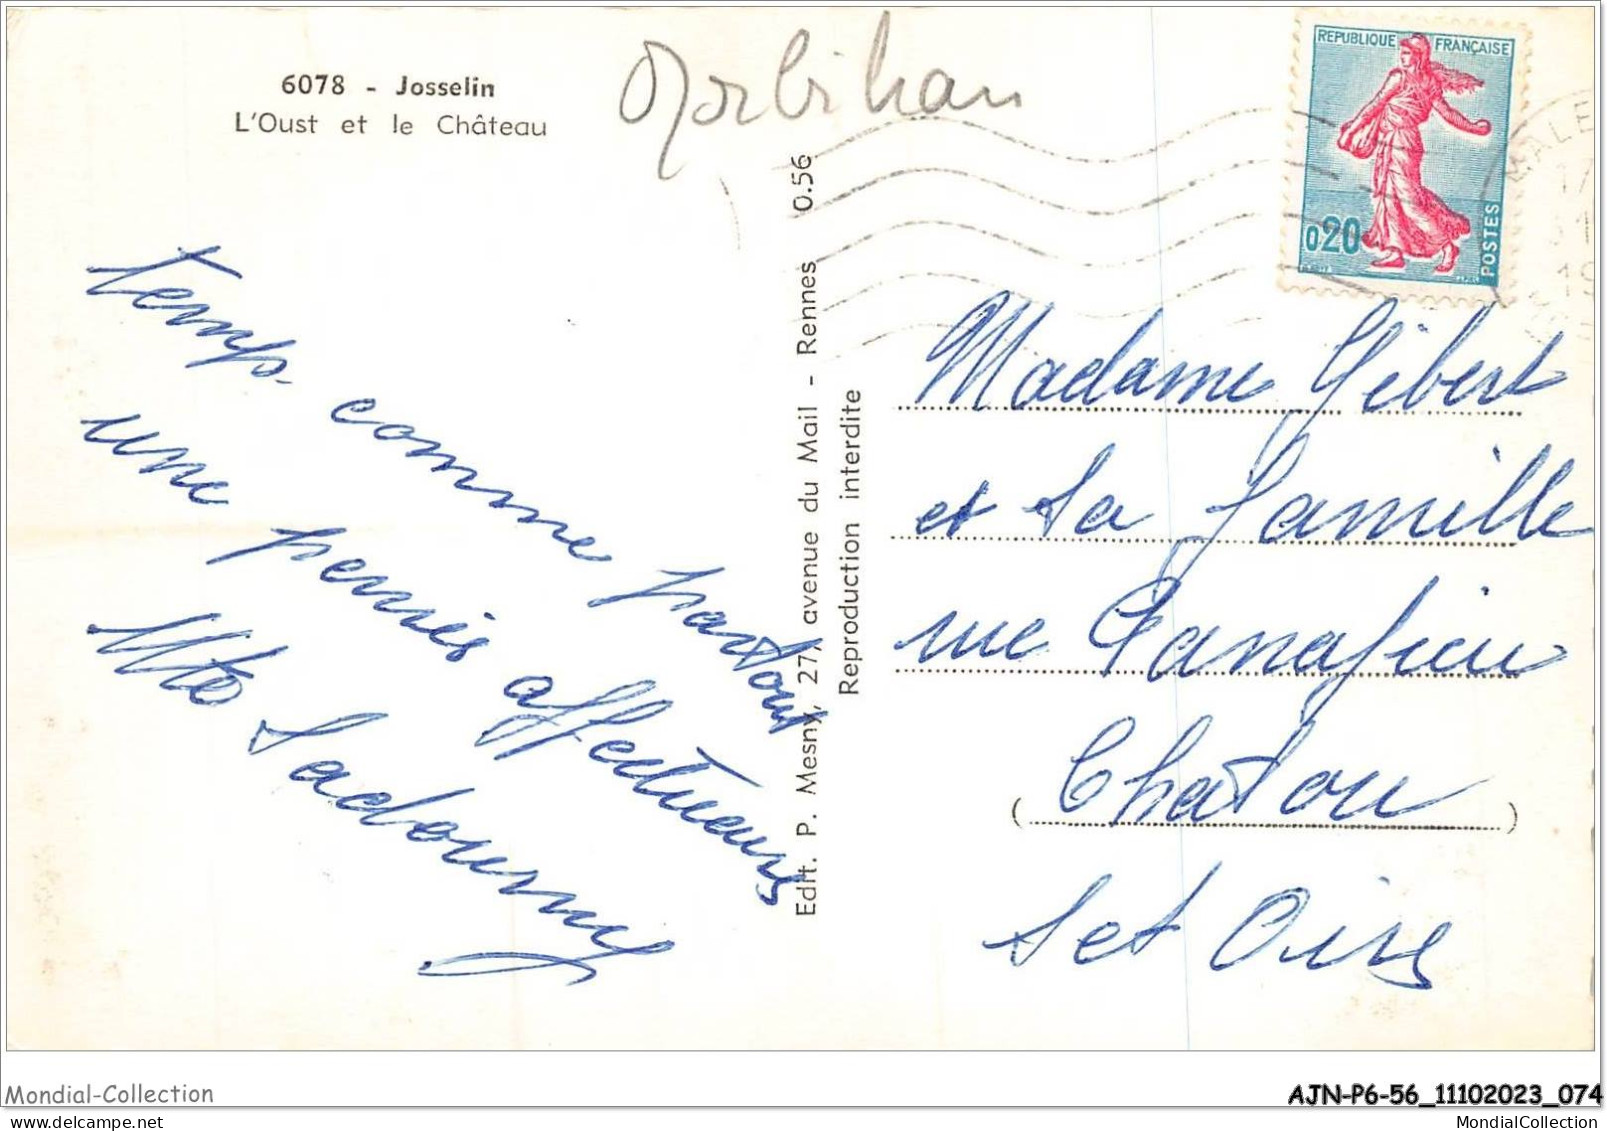 6078 - Josselin
L'Oust et le Château
Morbihan
REPUBLIQUE FRANÇAISE
0,20
POSTES
MALE
17
19
temps comme partout
une pensée affectueuse
Mte Sadourny
Edit. P. Mesny, 27, avenue du Mail - Rennes 0.56
Reproduction interdite
Madame Gibert
et Sa famille
rue
(Chatou)
Set Oise
Mondial-Collection
AJN-P6-56_11102023_074
MondialCollection